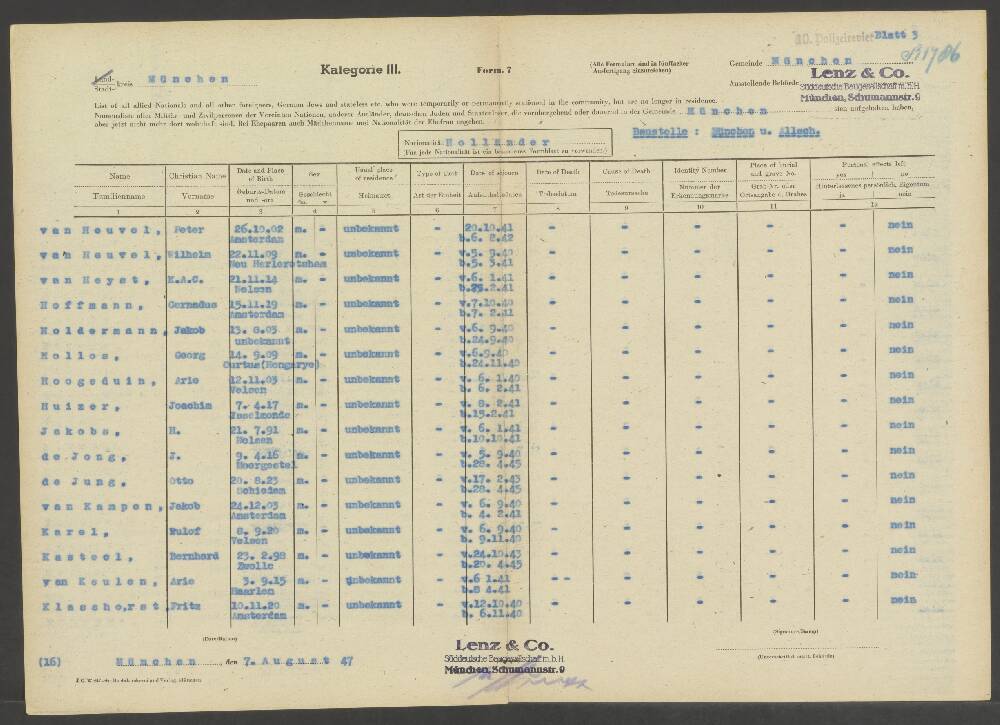 10. Polizeirevier Blatt 3
Land-
Stadt- kreis München
Kategorie III.
Form. 7
(Alle Formulare sind in fünffacher
Ausfertigung einzureichen)
Gemeinde München
Ausstellende Behörde
Lenz & Co.
Süddeutsche Baugesellschaft m.b.H.
München, Schumannstr. 9
List of all allied Nationals and all other foreigners, German Jews and stateless etc. who were temporarily or permanently stationed in the community, but are no longer in residence.
Namenslisten aller Militär- und Zivilpersonen der Vereinten Nationen, anderer Ausländer, deutschen Juden und Staatenloser, die vorübergehend oder dauernd in der Gemeinde München sich aufgehalten haben,
aber jetzt nicht mehr dort wohnhaft sind. Bei Ehepaaren auch Mädchenname und Nationalität der Ehefrau angeben.
Baustelle : München u. Allach.
Nationalität Holländer
(Für jede Nationalität ist ein besonderes Formblatt zu verwenden!)
Name Christian Name Date and Place of Birth Sex Usual place of residence Type of Unit Date of sojourn Date of Death Cause of Death Identity Number Place of burial and grave No. Personal effects left yes / no
Familienname Vorname Geburts-Datum und -ort Geschlecht Heimatort Art der Einheit Aufenthaltsdaten Todesdatum Todesursache Nummer der Erkennungsmarke Grab-No. oder Ortsangabe d. Grabes Hinterlassenes persönlich. Eigentum ja nein
1 2 3 4 5 6 7 8 9 10 11 12
van Heuvel, Peter 26.10.02 m. - unbekannt - 20.10.41 - - - - - nein
Amsterdam b.6. 2.42
van Heuvel, Wilhelm 22.11.09 m. - unbekannt - v.5. 9.40 - - - - - nein
b.5. 3.41
van Heyst, K.A.C. 21.11.14 m. - unbekannt - v.6. 1.41 - - - - - nein
Velsen b.25.2.41
Hoffmann, Gernadus 15.11.19 m. - unbekannt - v.7.10.40 - - - - - nein
Amsterdam b.7. 2.41
Holdermann, Jakob 13. 8.03 m. - unbekannt - v.6. 9.40 - - - - - nein
unbekannt b.24.9.40
Hollos, Georg 14. 9.09 m. - unbekannt - v.6.9.40 - - - - - nein
b.24.11.40
Hoogeduin, Arie 12.11.03 m. - unbekannt - v. 6. 1.40 - - - - - nein
Velsen b. 6. 2.41
Huizer, Joachim 7. 4.17 m. - unbekannt - v. 8. 2.41 - - - - - nein
b.15.2.41
Jakobs, H. 21. 7.91 m. - unbekannt - v. 6. 1.41 - - - - - nein
b.10.10.41
de Jong, J. 9. 4.16 m. - unbekannt - v. 5. 9.40 - - - - - nein
b.28. 4.45
de Jung, Otto 20. 8.23 m. - unbekannt - v.17. 2.43 - - - - - nein
Schiedam b.28. 4.45
van Kampen, Jakob 24.12.03 m. - unbekannt - v. 6. 9.40 - - - - - nein
Amsterdam b. 4. 2.41
Karel, Rulof 8. 9.20 m. - unbekannt - v. 6. 9.40 - - - - - nein
Velsen b. 9.11.40
Kasteel, Bernhard 23. 2.98 m. - unbekannt - v.24.10.43 - - - - - nein
Zwolle b.20. 4.45
van Keulen, Arie 3. 9.15 m. - unbekannt - v.6 1.41 - - - - - - nein
Haarlen b.8 4.41
Klaschorst, Fritz 10.11.20 m. - unbekannt - v.12.10.40 - - - - - nein
Amsterdam b. 6.11.40
(Date/Datum)
(Signature/Stamp)
(16) München, den 7. August 47
Lenz & Co.
Süddeutsche Baugesellschaft m.b.H.
München, Schumannstr. 9